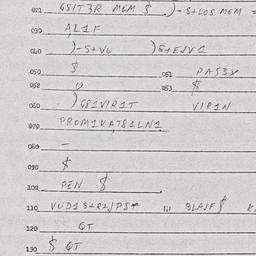 021 GSIT3R MEM $ )-S+LOS MEM
030 AL1F
040 )-S+VU )S+EJV1
050 $ 051 PAS3X
052 053 $
060 )GS1VIR1T VIP1N
070 PROM1KAT81LN1
080 –
090 $
100 PEN $
110 111 BLAJF $
120 QT
130 $ QT